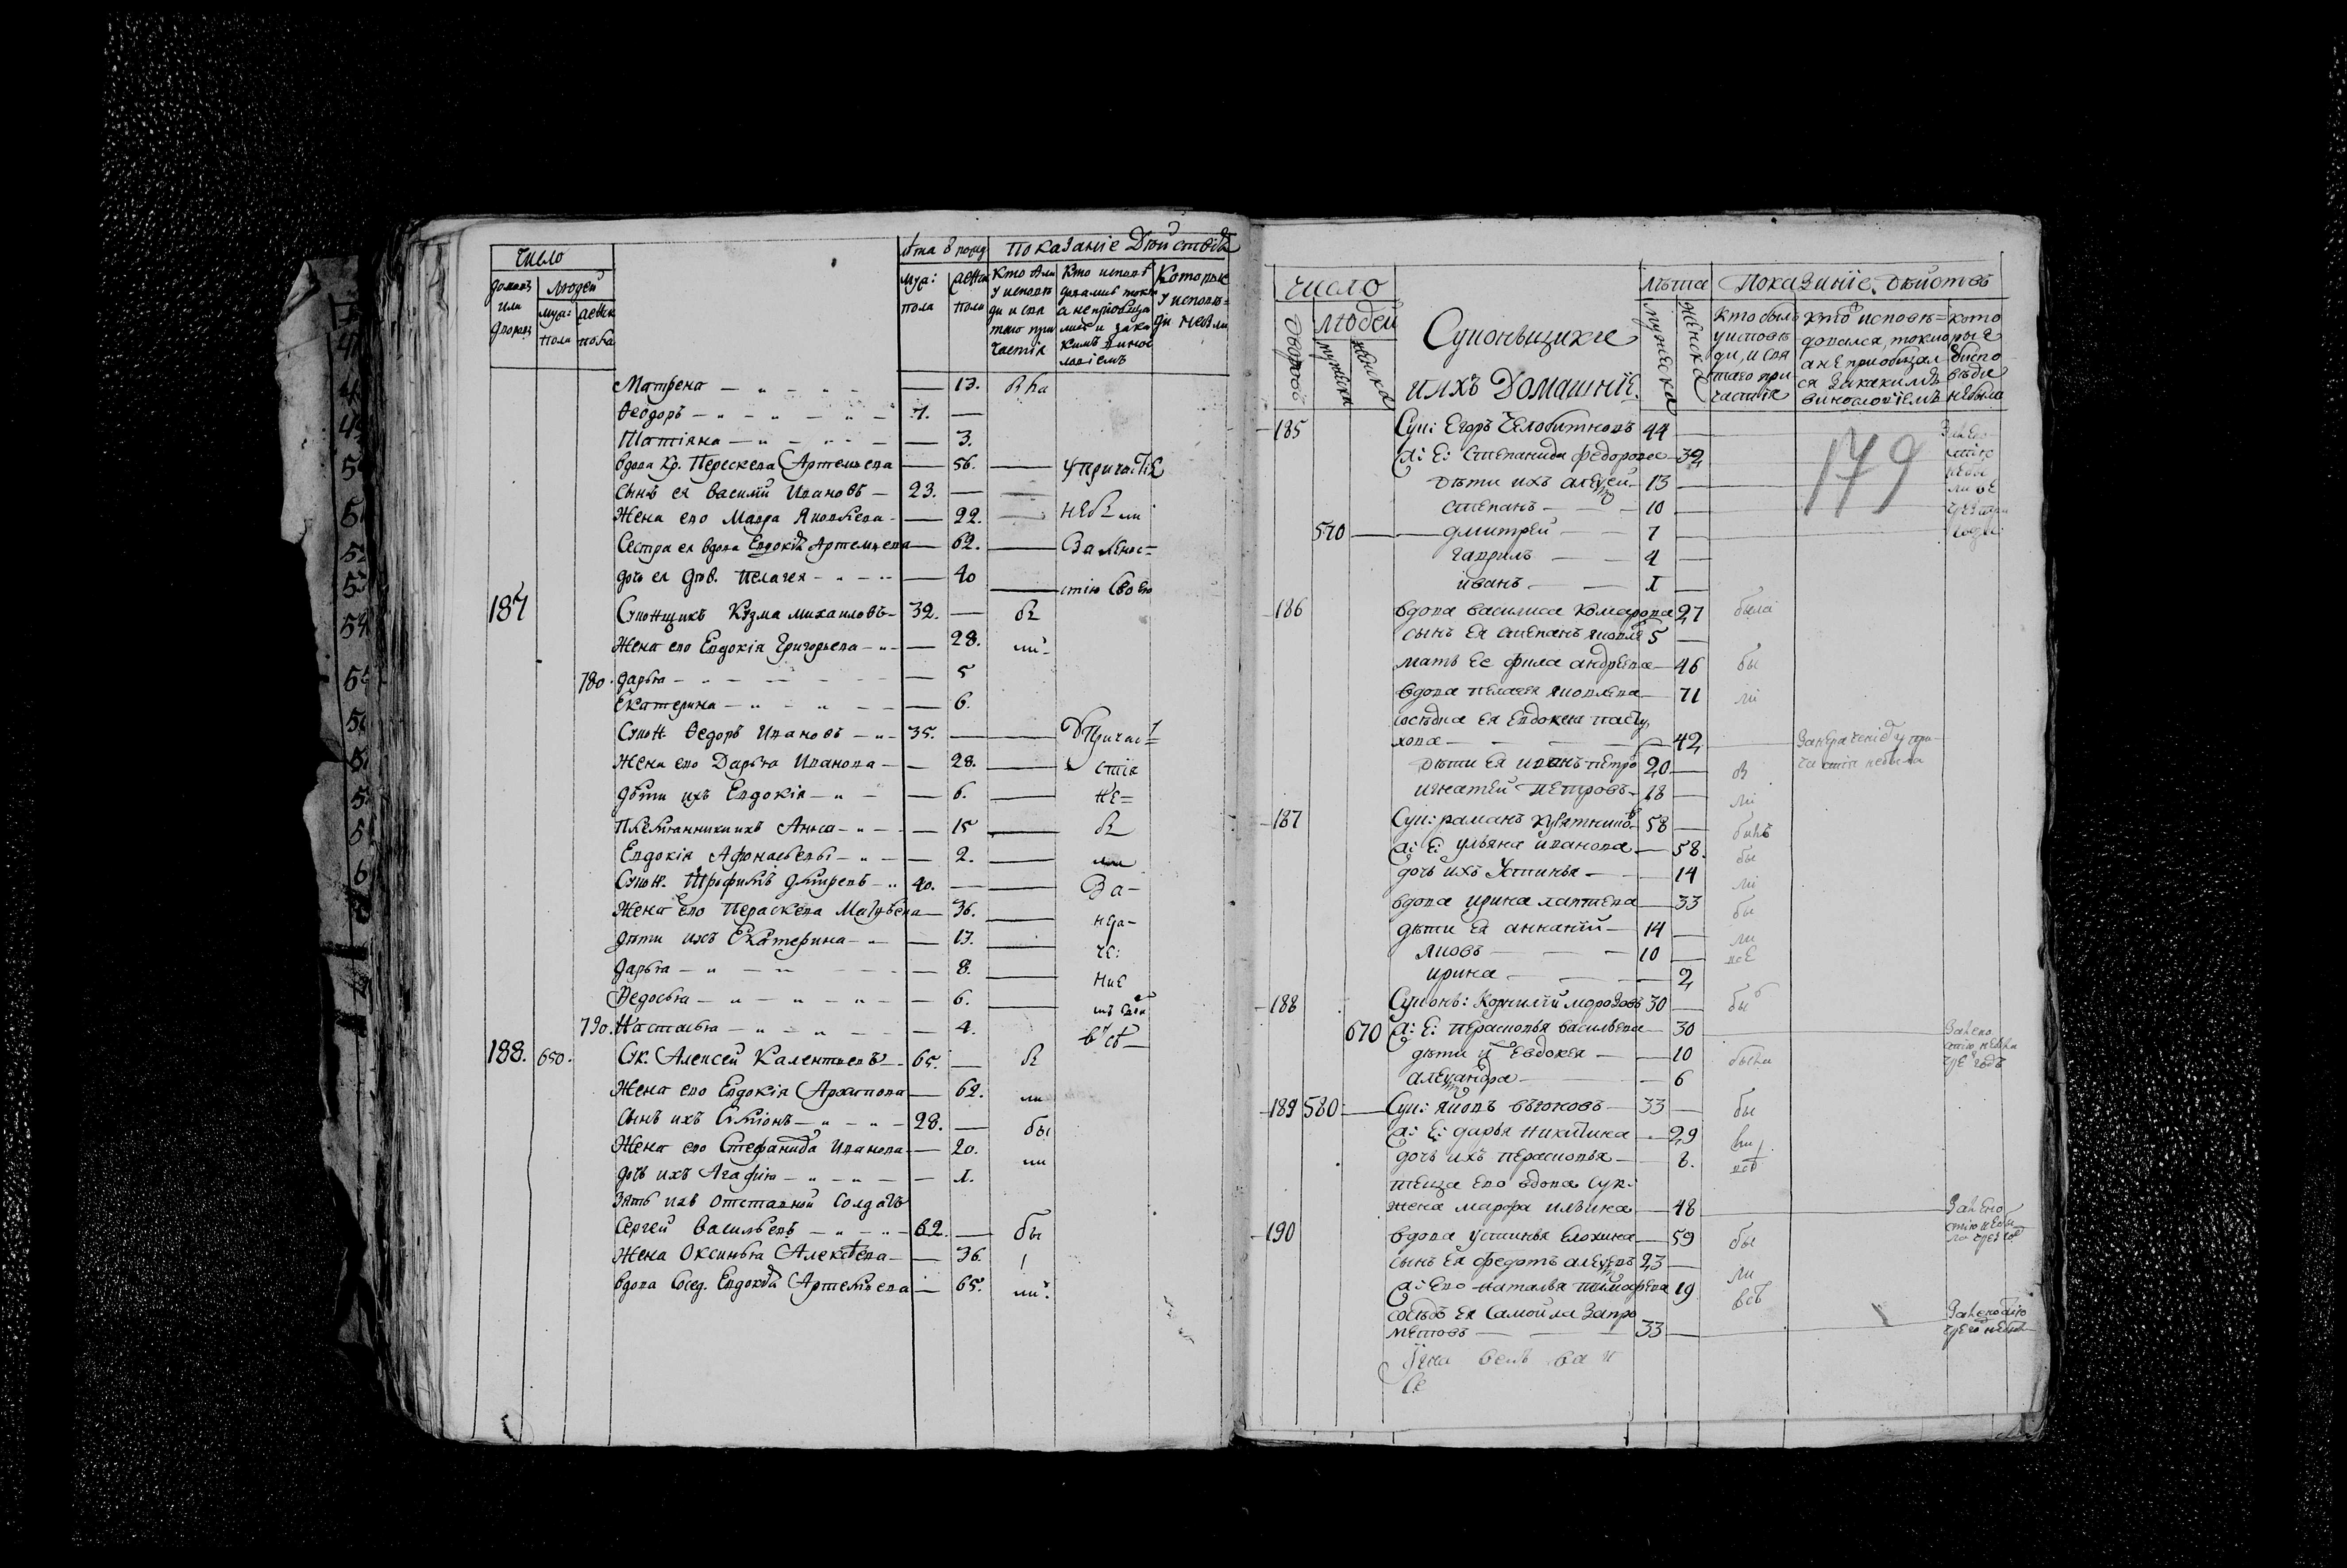 Число
домовъ или дворовъ
людей
муж: пола
женск пола
лѣта
муж: пола
женск пола
Показаніе Действій
Кто были у исповѣди и святаго причастія
Кто исповѣдовались токмо а не приобщались и за какимъ винословіемъ
Которые у исповѣди не были
Матрена — 13.
Ѳеодоръ — 7. —
Татіяна — 3.
вдова Кр. Перескева Артемьева — 56. — у причастіЕ
сынъ ея Василій Ивановъ — 23. —
Жена его Мавра Яковлева — 22. — не были
Сестра ея вдова Евдокія Артемьева — 62. — За лѣнос=
дочь ея дѣв. Пелагея — 40 — стію Своею
187 Сукнщикъ Кузма михаиловъ — 32. — бы
Жена его Евдокія Григорьева — 28. ли
780. дарья — 5
Екатерина — 6.
Сукн. Ѳедоръ Ивановъ — 35. — У Причас=
Жена его Дарья Иванова — 28. — стія
дѣти ихъ Евдокія — 6. — не=
Племянники ихъ Анна — 15 — бы
Евдокія Афонасьевы — 2. — ли
Сукн. Трофимъ — 40. — За-
Жена его Пераскева Матвѣева — 36. — нера-
дѣти ихъ Екатерина — 13. — че:
дарья — 8. — ніе
Ѳедосья — 6.
790. Настасья — 4.
188. 650. Сук. Алексей Калентьевъ — 65. — бы
Жена его Евдокія Архипова — 62. ли
Сынъ ихъ Симіонъ — 28. — бы
Жена его Стефанида Иванова — 20. ли
дочь ихъ Агафія — 1.
Зять ихъ отставной Солдатъ
Сергей Васильевъ — 62. — бы
Жена Оксинья Алексѣева — 36.
вдова сосед. Евдокія Артемьева — 65. ли
число
дворовъ
людей
мужеска
женска
Суконьщики
и ихъ домашніе.
лѣта
мужеска
женска
Показаніе дѣйствъ
кто былъ у исповѣди, и святаго причастія
кто исповѣдовался, токмо а не приобщался и за какимъ винословіемъ
которые у исповѣди не были
179
185 Сук: Егоръ Челобитновъ 44 — За лѣностію не были
ж: Е: Степанида федорова — 32
дѣти ихъ алексей — 13
степанъ — 10
570 — дмитрей — 7
гаврилъ — 4
иванъ — 1
186 вдова василиса комарова 27 была
сынъ ея степанъ яковл 5 —
мать ее андрѣева — 46 бы
вдова пелагея яковлева — 71 ли
сосѣдка ея Евдокея пасту
хова — 42 За нераченіе у при-
частія небыла
дѣти ея иванъ петро 20 — бы
игнатей петровъ — 18 — ли
187 Сук: раманъ курятниковъ — 58 — былъ
ж: Е: ульяна иванова — 58. бы
дочь ихъ устинья — 14 ли
вдова ирина — 33 бы
дѣти ея ананій — 14 — ли
яковъ — 10 — все
ирина — 2
188 Суконь: Корнилій морозовъ 30 — бы
670 ж: Е: перасковья васильева — 30 За лено
стію небыла
дѣти и Евдокея — 10 была
александра — 6
189 580 — Сук: яковъ — 33 — бы
ж: Е: дарья никитина — 29 ли
дочь ихъ перасковья — 8. все
теща его вдова Сук:
жена марфа ильина — 48 За лено
стію небы
190 вдова устинья блохина — 59 бы
сынъ ея федотъ алексѣевъ 23 — ли
ж: Его наталья тимофеева 19 все
сосѣдъ ея Самойла Запро
метовъ — 33 — За леностію